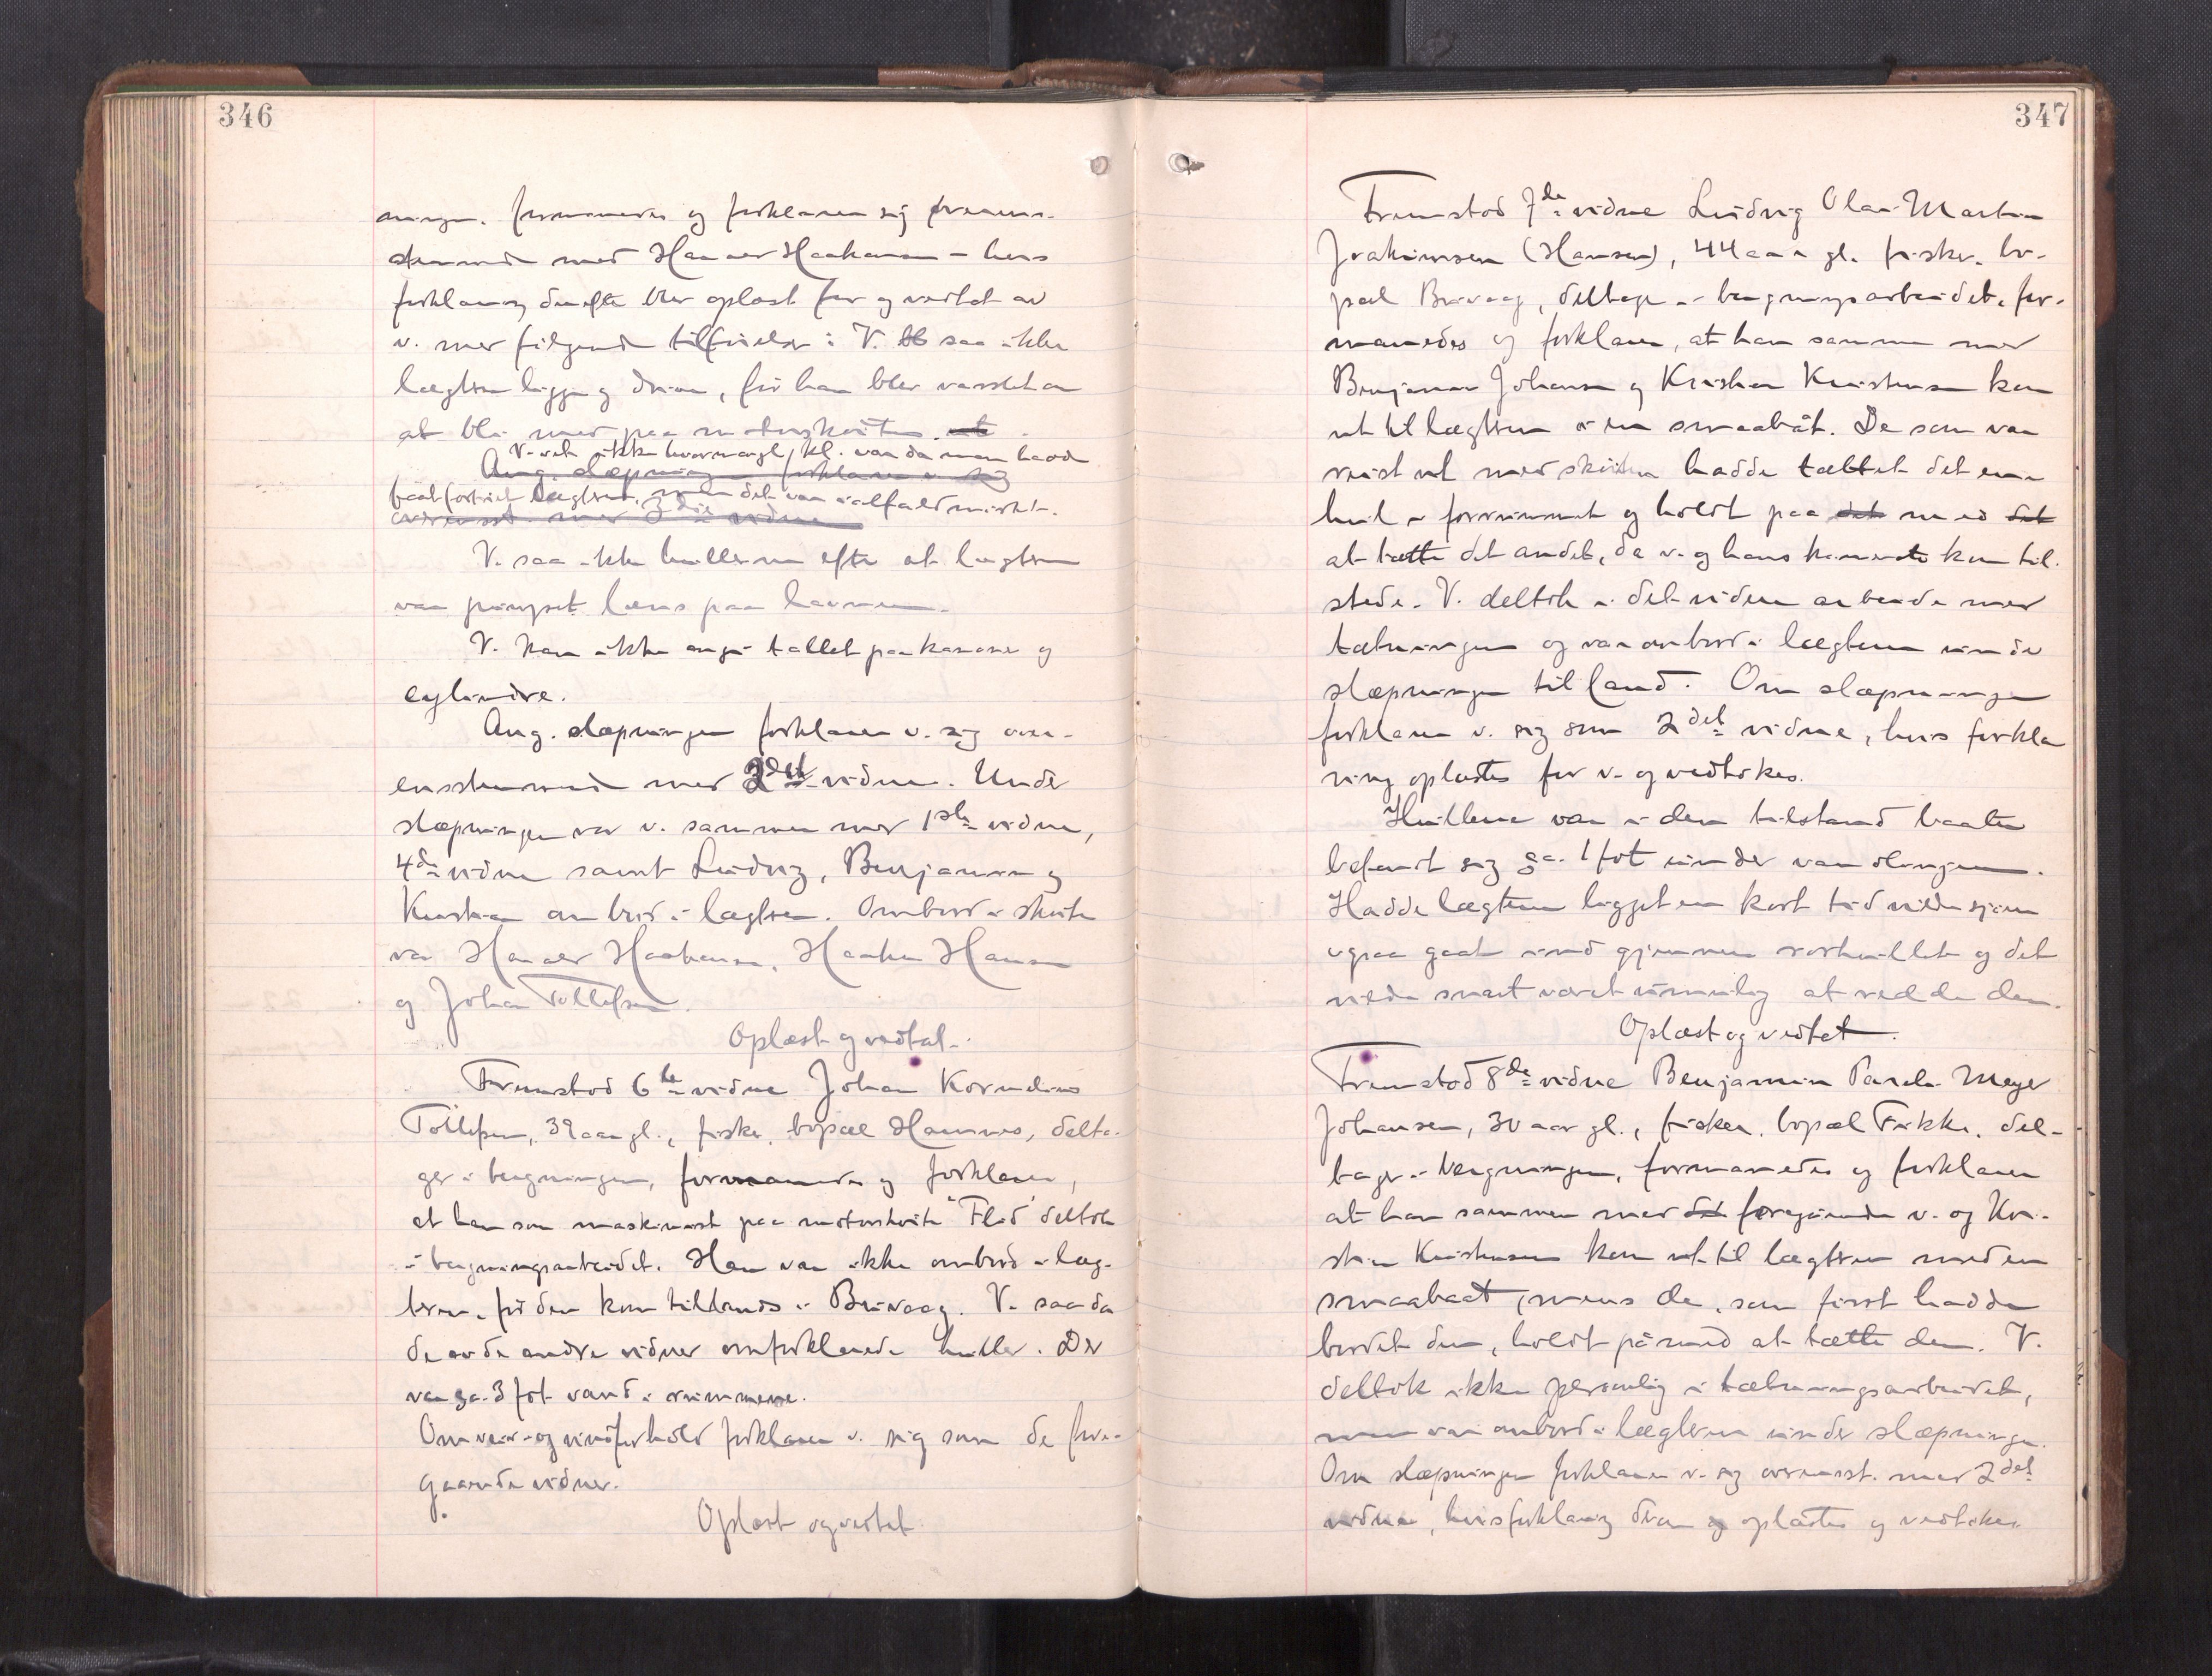 346
ningen, formanedes og forklarer sig overens-
stemmende med Hans Haakonsen - hvis
forklaring derefter blev oplæst for og vedtat av
v. med følgende tilføielse: V. saa ikke
lægteren ligge og drive, før han blev varslet om
at bli med paa motorskøiten.
V. vet ikke hvormange kl. var da man hadde
Ang. slæpningen forklarer v. sig
faat fortøiet lægteren, men det var ialfald mørkt.
overensst. med 3die vidne
V. saa ikke hullerne efter at lægteren
var pumpet læns paa havnen.
V. kan ikke angi tallet paa kanoner og
cylindre.
Ang. slæpningen forklarer v. sig over-
ensstemmende med 2det vidne. Under
slæpningen var v. sammen med 1ste vidne,
4de vidne samt Ludvig, Benjamin og
Kristian ombord i lægteren. Ombord i skøiten
var Haakonsen, Haakon Hansen
og Johan Tollefsen.
Oplæst og vedtat.
Fremstod 6te vidne Johan Kornelius
Tollefsen, 39 aar gl., fisker, bopæl Hamnes, delta-
ger i bergningen, formanedes og forklarer,
at han som maskinist paa motorskøite "Flid" deltok
i bergningsarbeidet. Han var ikke ombord i læg-
teren, før den kom tillands i Breivaag. V. saa da
de av de andre vidner omforklarede huller. Der
var ca. 3 fot vand i rummene.
Om veir- og vindforhold forklarer v. sig som de fore-
gaaende vidner.
Oplæst og vedtat.
347
Fremstod 7de vidne Ludvig Olai Martin
Joakimsen (Hansen), 44 aar gl. fisker, bo-
pæl Breivaag, deltager i bergningsarbeidet, for-
manedes og forklarer, at han sammen med
Benjamin Johansen og Kristian Kristensen kom
ut til lægteren i en smaabåt. De som var
reist ut med skøiten hadde tættet det ene
hul i forrummet og holdt paa det med det
at tætte det andet, da v. og hans kamerater kom til-
stede. V. deltok i det videre arbeide med
tætningen og var ombord i lægteren under
slæpningen til land. Om slæpningen
forklarer v. sig som 2det vidne, hvis forkla
ring oplæstes for v. og vedtokes.
Hullene var i den tilstand baaten
befandt sig ca. 1 fot under vandlinjen.
Hadde lægteren ligget en kort tid vilde sjøen
ogsaa gaat ind gjennem rorhullet og det
vilde snart været umulig at redde den.
Oplæst og vedtat.
Fremstod 8de vidne Benjamin Pareli Meyer
Johansen, 30 aar gl., fisker, bopæl Tekke, del-
tager i bergningen, formanedes og forklarer
at han sammen med det foregaaende v. og Kri-
stian Kristensen kom ut til lægteren med en
smaabaat, mens de, som først hadde
bordet den, holdt på med at tætte den. V.
deltok ikke personlig i tætningsarbeidet,
men var ombord i lægteren under slæpningen.
Om slæpningen forklarer v. sig overensst. med 2det
vidne, hvis forklaring oplæstes og vedtokes.